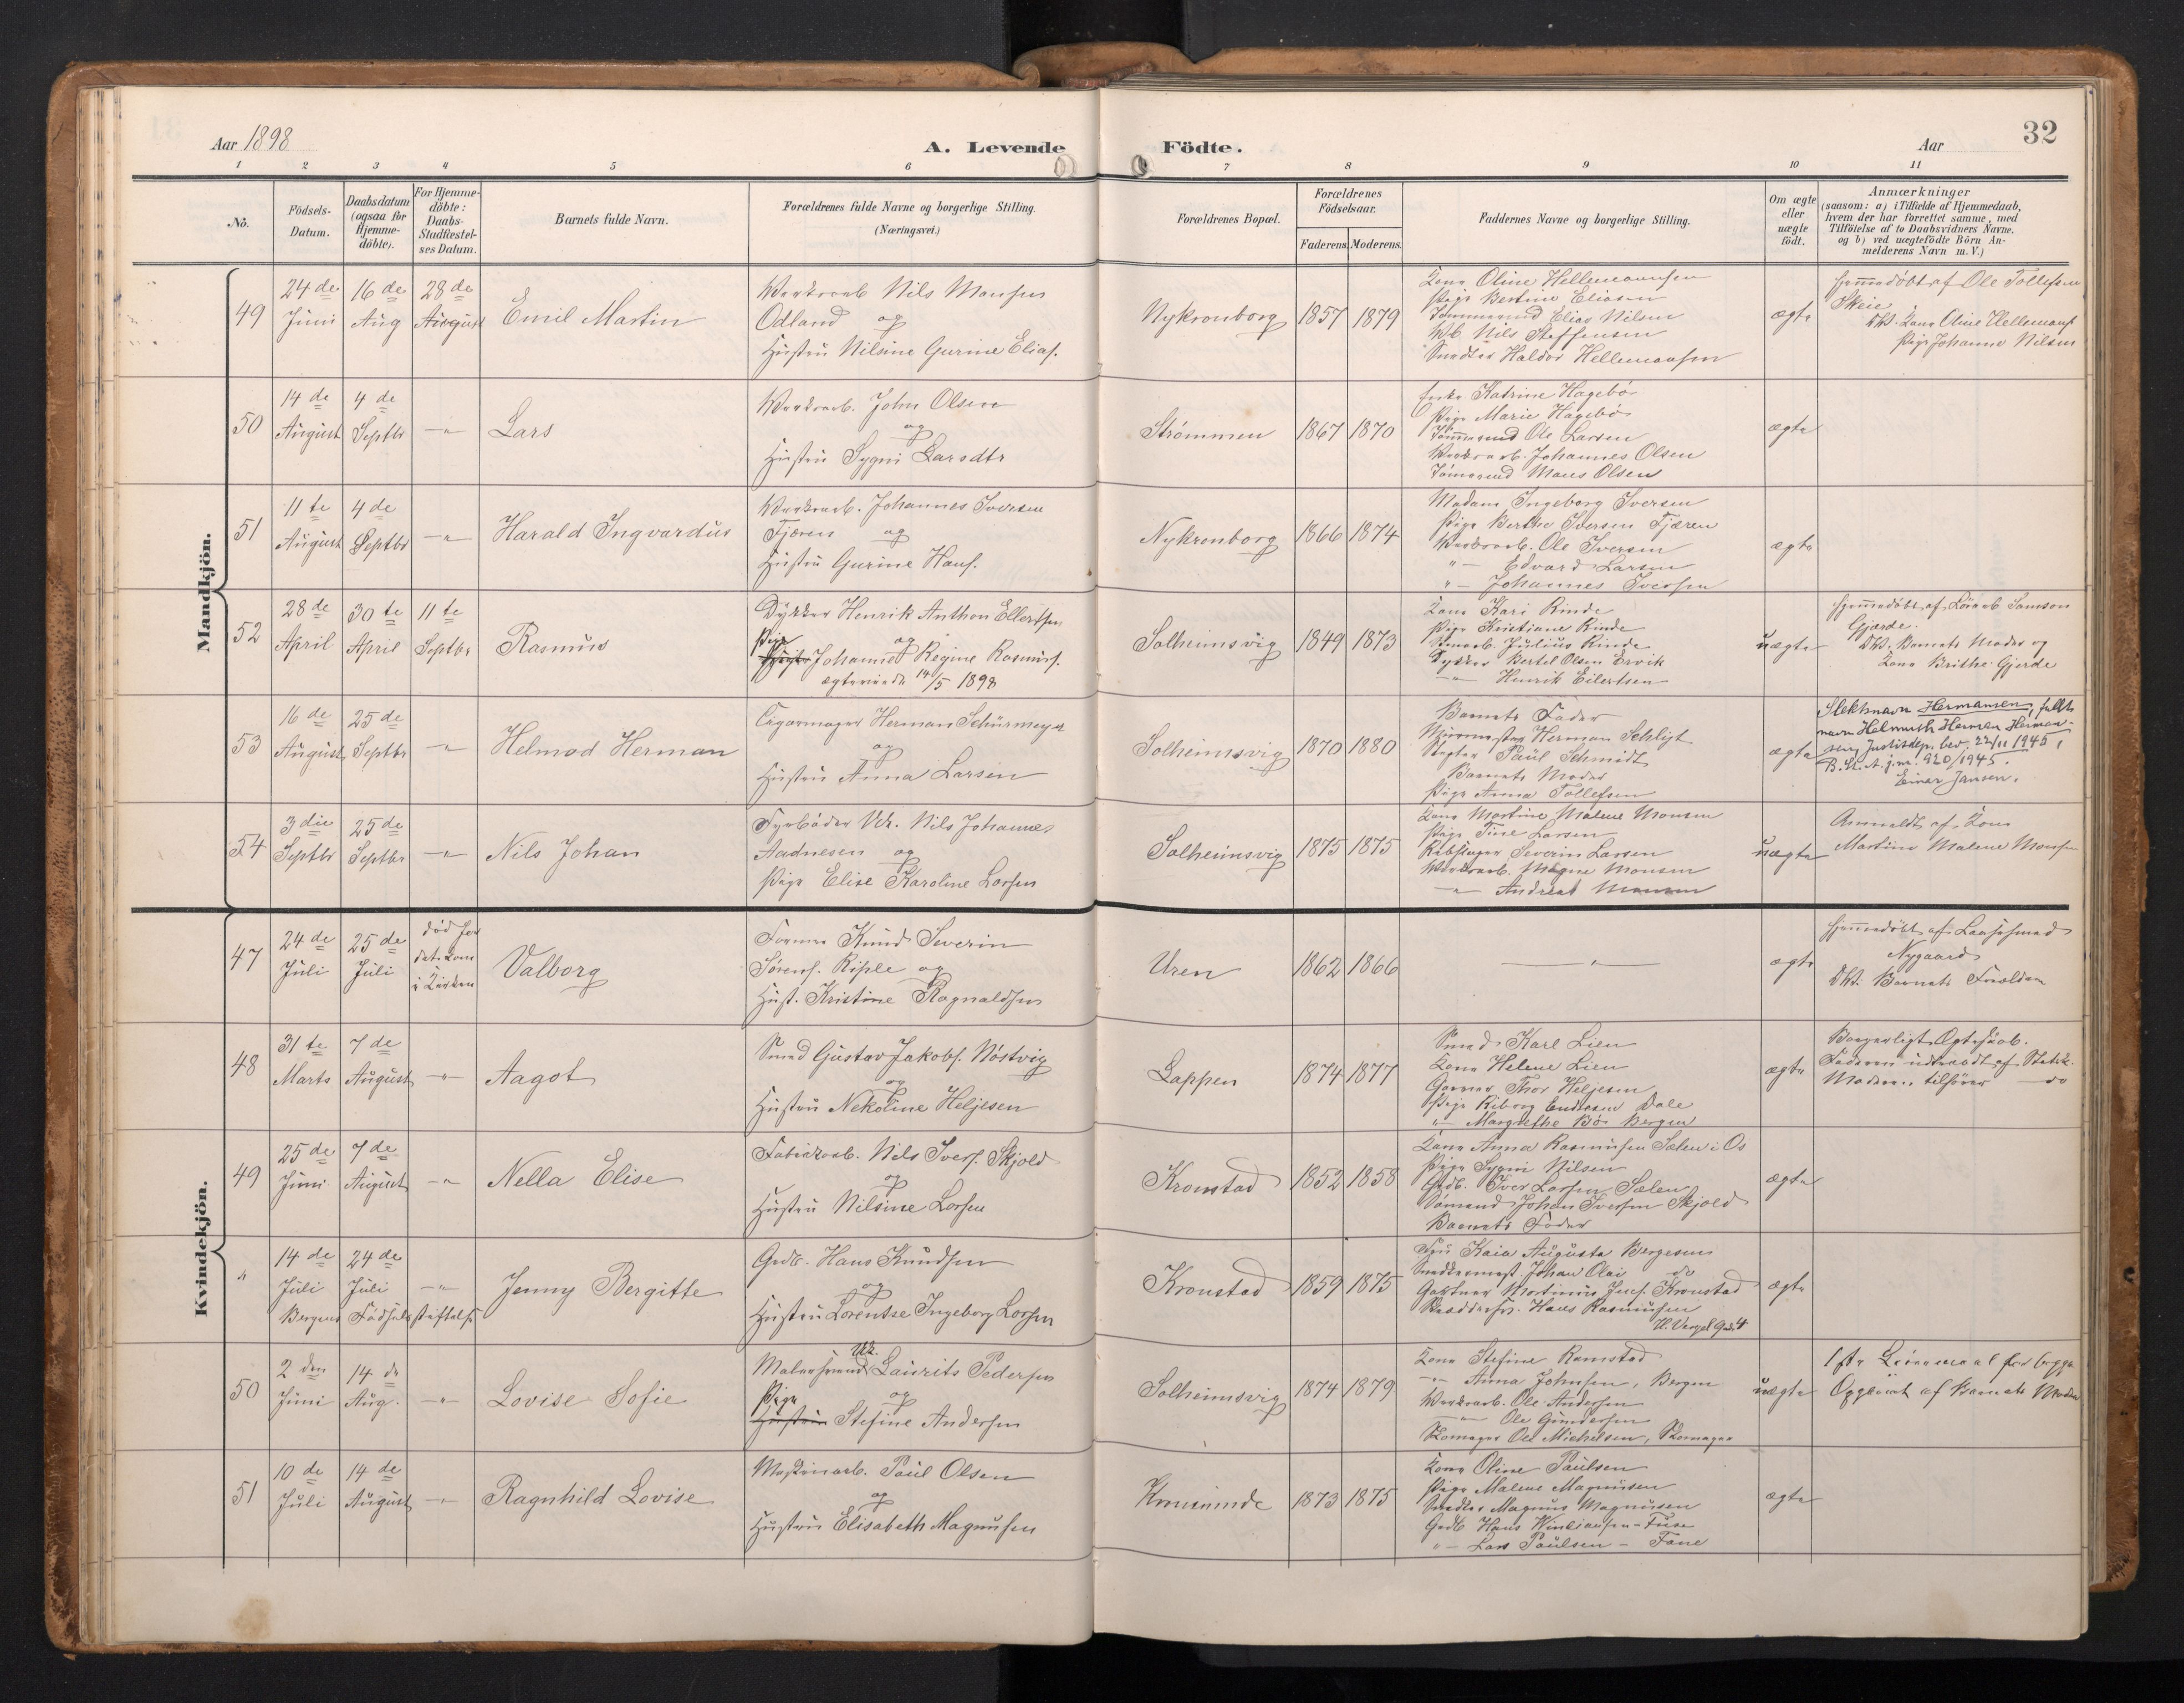 Aar 1898
A. Levende Födte.
Aar
32
1 2 3 4 5 6 7 8 9 10 11
No.
Födsels-Datum.
Daabsdatum (ogsaa for Hjemmedöbte).
For Hjemmedöbte: Daabs-Stadfæstelses Datum.
Barnets fulde Navn.
Forældrenes fulde Navne og borgerlige Stilling.
(Næringsvei.)
Forældrenes Bopæl.
Forældrenes Födselsaar.
Faderens. Moderens.
Faddernes Navne og borgerlige Stilling.
Om ægte eller uægte födt.
Anmærkninger
(saasom: a) i Tilfælde af Hjemmedaab, hvem der har forrettet samme, med Tilföielse af to Daabsvidners Navne, og b) ved uægtefödte Börn Anmelderens Navn m. V.)
Mandkjön.
49
24de Juni
16de Aug
28de August
Emil Martin
Nils Monsen
Odland og
Hustru Nilsine Gurine Elias.
Nykronborg
1857 1879
Kone Oline Hellemannsen
Pige Bertine Eliasen
Tømmermd Elias Nilsen
Nils Steffensen
Snedker Haldor Hellemansen
ægte
Hjemmedøbt af Ole Tollefsen
Skeie
DV. Kone Oline Hellemans
Pige Johanne Nilsen
50
14de August
4de Septbr
—"—
Lars
Værksarb. John Olsen
og
Hustru Sygni Larsdtr
Strømmen
1867 1870
Enke Katrine Hagebø
Pige Marie Hagebø
Tømmermd Ole Larsen
Værksarb. Johannes Olsen
Tømmermd Mons Olsen
ægte
51
11te August
4de Septbr
—"—
Harald Ingvardus
Værksarb. Johannes Iversen
Tjæren og
Hustru Gurine Hans.
Nykronborg
1866 1874
Madam Ingeborg Iversen
Pige Berthe Iversen Tjæren
Værksarb. Ole Iversen
"— Edvard Larsen
"— Johannes Iversen
ægte
52
28de April
30te April
11te Septbr
Rasmus
Dykker Henrik Anthon Ellertsen
og
Pige Johanne Regine Rasmuss.
ægteviede 14/5 1898
Solheimsvig
1849 1873
Kone Kari Rinde
Pige Kristiane Rinde
Julius Rinde
Dykker Bertel Olsen Ervik
—"— Henrik Eilertsen
uægte
Hjemmedøbt af Samson
Gjærde.
DV. Barnets Moder og
Kone Brithe Gjerde
53
16de August
25de Septbr
—"—
Helmod Herman
Cigarmager Herman Schürmeyer
og
Hustru Anna Larsen
Solheimsvig
1870 1880
Barnets Fader
Herman Schligt
Paul Schmidt
Barnets Moder
Pige Anna Tollefsen
ægte
Slektsnavn Hermansen, fullt
navn Helmuth Herman Herman-
sen, Justisdep. bev. 22/11 1945,
B. St. A. j.nr. 920/1945.
Einar Jansen.
54
3die Septbr
25de Septbr
—"—
Nils Johan
Fyrbøder Uk. Nils Johannes
Aadnesen og
Pige Elise Karoline Larsen
Solheimsvig
1875 1875
Kone Martine Malene Monsen
Pige Tine Larsen
Severin Larsen
Værksarb. Mogne Monsen
—"— Andreas Monsen
uægte
Anmeldt af Kone
Martine Malene Monsen
Kvindekjön.
47
24de Juli
25de Juli
død før
dets kom
i Kirken
Valborg
Former Knud Severin
Sørens. Risple og
Hust. Kristine Ragnaldsen
Uren
1862 1866
—"—
ægte
Hjemmedøbt af
Nygaard
DV. Barnets Forældre
48
31te Marts
7de August
—"—
Aagot
Smed Gustav Jakobs. Nöstvig
og
Hustru Nekoline Heljesen
Lappen
1874 1877
Smed Karl Lien
Kone Helene Lien
Thor Heljesen
Pige Riborg Endresen Dale
"— Margrethe Bø Bergen
ægte
Borgerligt Ægteskab.
Faderen udtraadt af Statsk.
Moderen tilhører do
49
25de Juni
7de August
—"—
Nella Elise
Fabrikarb. Nils Ivers. Skjold
og
Hustru Nilsine Larsen
Kronstad
1852 1858
Kone Anna Rasmusen Sælen i Os
Pige Sygni Nilsen
Grdb. Iver Larsen Sælen
Sømand Johan Iversen Skjold
Barnets Fader
ægte
"
14de Juli
24de Juli
—"—
Bergens Fødselsstiftelse
Jenny Bergitte
Grdb. Hans Knudsen
og
Hustru Lorentse Ingeborg Larsen
Kronstad
1859 1875
Fru Kaia Augusta Bergesen
Snedkermest. Johan Olai do
Gartner Martinus Jens. Kronstad
Hans Rasmusen
ægte
50
2den Juni
14de Aug.
—"—
Lovise Sofie
Uk.
Malersvend Laurits Pedersen
og
Pige Stefine Andersen
Solheimsvig
1874 1879
Kone Stefine Ramstad
—"— Anna Johnsen, Bergen
Værksarb. Ole Andersen
—"— Ole Gundersen
Skomager Ole Michelsen, Skomager
uægte
1ste Leiermaal for begge
Opgivet af Barnets Moder
51
10de Juli
14de August
—"—
Ragnhild Lovise
Maskinarb. Paul Olsen
og
Hustru Elisabeth Magnusen
Kronminde
1873 1875
Kone Oline Paulsen
Pige Malene Magnusen
Snedker Magnus Magnusen
Grdb Hans
"— Lars Paulsen — Fane
ægte